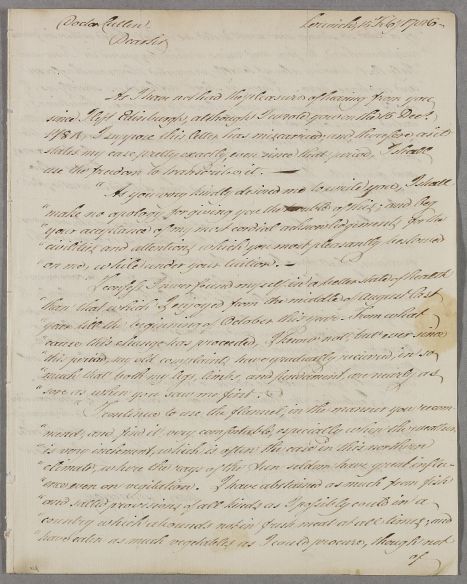 Doctor Cullen!
Lerwick, 14 Feby 1786
Dear Sir
As I have not had the pleasure of hearing from you
since I left Edinburgh, although I wrote you on the 15 Decr.
I suppose this letter has miscarried, and therefore as it
states my case pretty exactly ever since that period, I shall
use the freedom to transcrive it. —
"As you very kindly desired me to write you, I shall
"make no apology for giving you the trouble of this; and beg
"your acceptance of my most cordial acknowledgements, for the
"civilities and attention, which you most pleasantly bestowed
"on me, while under your tuition. —
I confess I never found myself in a better state of health
"than that which I enjoyed from the middle of August last
year till the beginning of October this year. From what
"cause this change has proceeded, I know not; but ever since
"this period my old complaints have gradually recurred, in so
"much that both my legs, limbs, and fundament are nearly as
"sore as when you saw me first.
I continue to use the flannel, in the manner you recom-
"mend, and find it very comfortable, especially when the weather
"is very inclement, which is often the case in this northern
"climate, where the rays of the Sun seldom have great influ-
"ence even on vegetation. I have abstained as much from fish
"and salted provisions of all kinds as I possibly could in a
"country which abounds not in fresh meat at all times, and
"have eaten as much vegetables as I could procure, though not
of